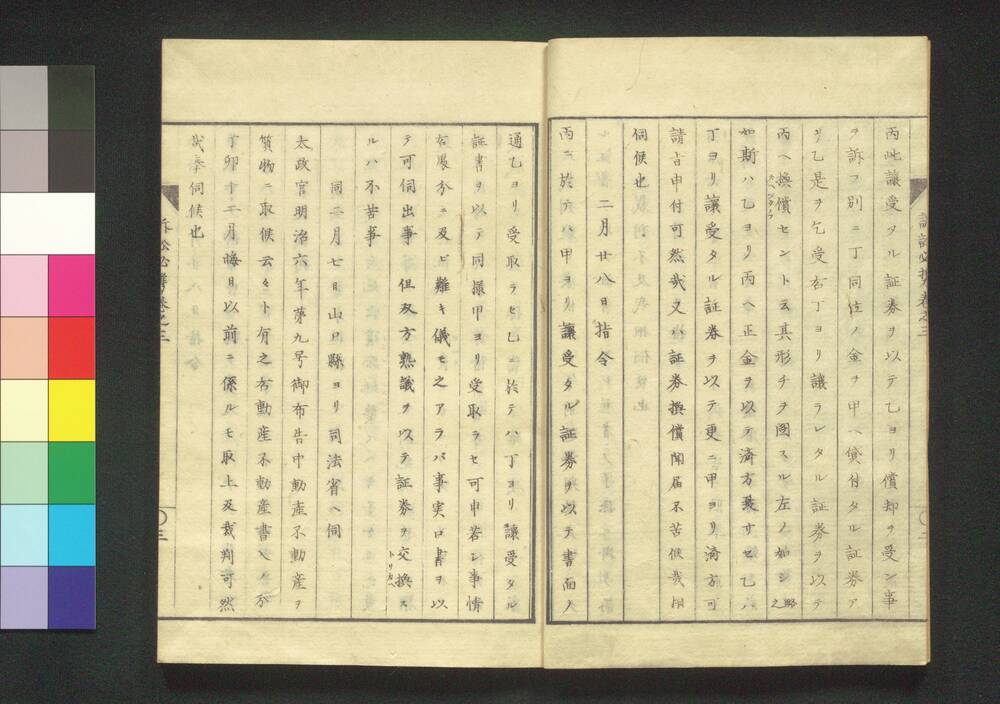 丙此讓受タル証券ヲ以テ乙ヨリ償却ヲ受ン事
ヲ訴フ別ニ丁同位ノ金ヲ甲ヘ貸付タル証券ア
リ乙是ヲ乞受右丁ヨリ讓ラレタル証券ヲ以テ
丙ヘ換償セント云其形チヲ圖スル左ノ如シ略之
如斯ハ乙ヨリ丙ヘ正金ヲ以テ済方致サセ乙ハ
丁ヨリ讓受タル証券ヲ以テ更ニ甲ヨリ済方可
請旨申付可然哉又ハ証券換償聞届不苦候哉相
伺候也
二月廿八日指令
丙ニ於テハ甲ヨリ讓受タル証券ヲ以テ書面ノ
通乙ヨリ受取ラセ乙ニ於テハ丁ヨリ讓受タル
証書ヲ以テ同樣甲ヨリ受取ラセ可申若シ事情
右處分ニ及ビ難キ儀モ之アラバ事実口書ヲ以
テ可伺出事 但双方熟議ヲ以テ証券ヲ交換トリカヘス
ルハ不苦事
同二月七日山口縣ヨリ司法省ヘ伺
太政官明治六年第九号御布告中動產不動產ヲ
質物ニ取候云々ト有之右動產不動產書入ノ分
丁卯十二月晦日以前ニ係ルモ取上及裁判可然
哉奉伺候也
訴訟必携卷之三
三